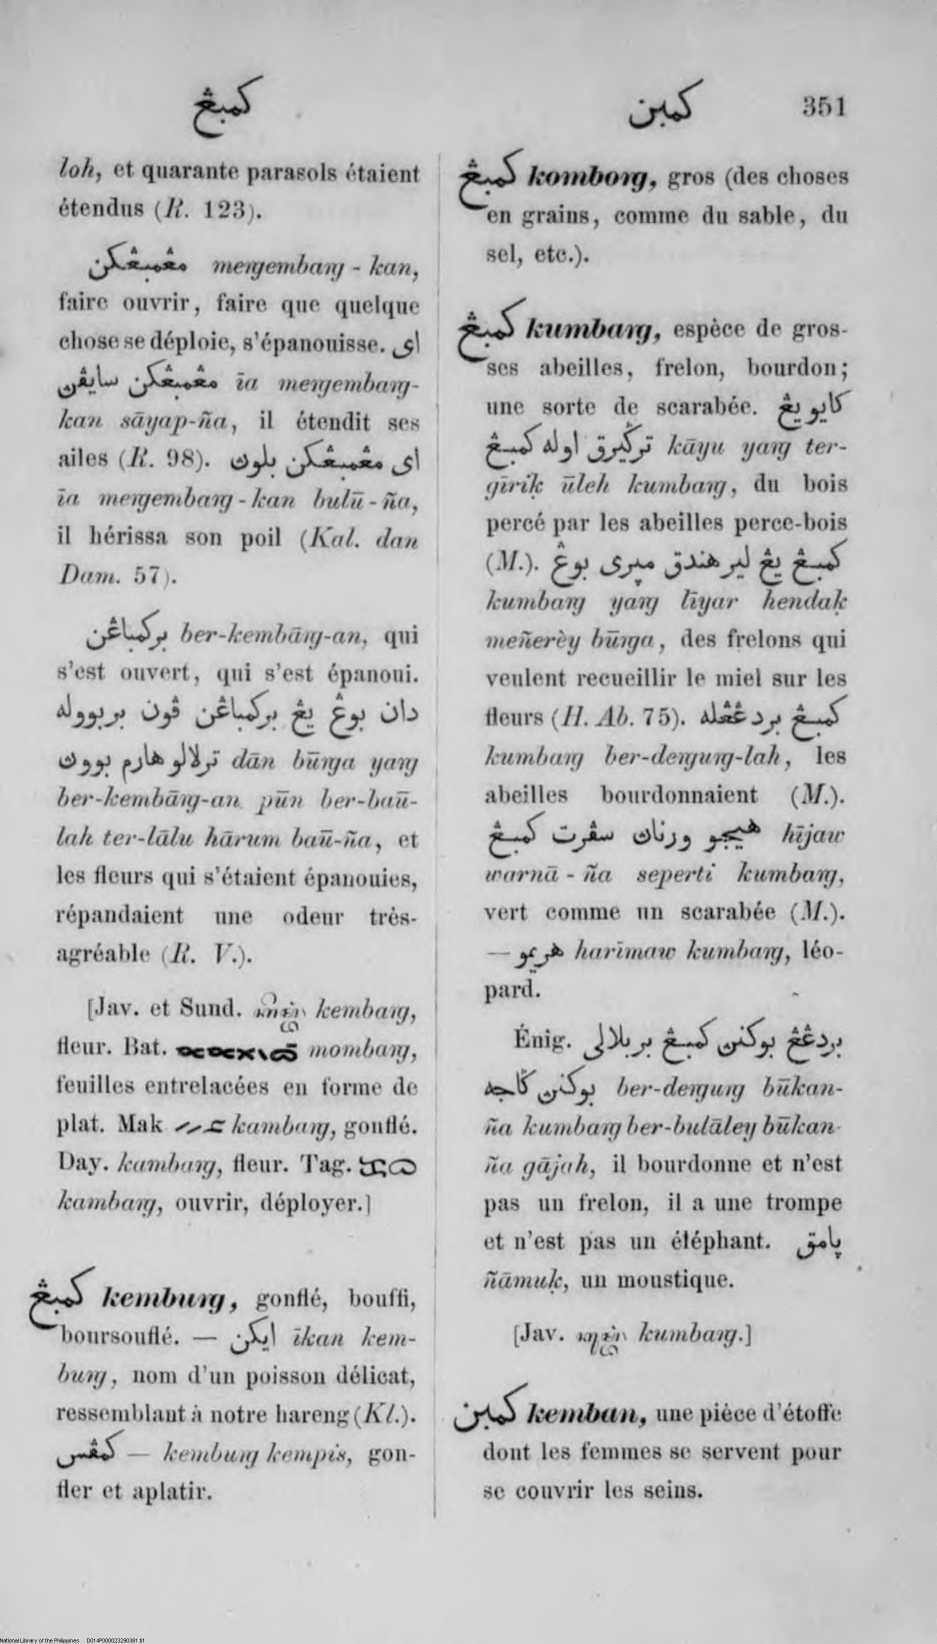 كمبڠ
كمبن 351
loh, et quarante parasols étaient
étendus (R. 123).
مڠمبڠكن meŋgembaŋ-kan,
faire ouvrir, faire que quelque
chose se déploie, s'épanouisse. اى
مڠمبڠكن سايڤن īa meŋgembaŋ-
kan sāyap-ña, il étendit ses
ailes (R. 98). اى مڠمبڠكن بلون
īa meŋgembaŋ-kan bulū-ña,
il hérissa son poil (Kal. dan
Dam. 57).
بركمباڠن ber-kembāŋ-an, qui
s'est ouvert, qui s'est épanoui.
دان بوڠ يڠ بركمباڠن ڤون بربووله
ترلالو هارم بوون dān būŋa yaŋ
ber-kembāŋ-an pūn ber-baū-
lah ter-lālu hārum baū-ña, et
les fleurs qui s'étaient épanouies,
répandaient une odeur très-
agréable (R. V.).
[Jav. et Sund. kembaŋ,
fleur. Bat. mombaŋ,
feuilles entrelacées en forme de
plat. Mak kambaŋ, gonflé.
Day. kambaŋ, fleur. Tag.
kambaŋ, ouvrir, déployer.]
كمبڠ kembuŋ, gonflé, bouffi,
boursouflé. — ايكن īkan kem-
buŋ, nom d'un poisson délicat,
ressemblant à notre hareng (Kl.).
كمڤس — kembuŋ kempis, gon-
fler et aplatir.
كمبڠ komboŋ, gros (des choses
en grains, comme du sable, du
sel, etc.).
كمبڠ kumbaŋ, espèce de gros-
ses abeilles, frelon, bourdon;
une sorte de scarabée. كايو يڠ
ترڬيرق اوله كمبڠ kāyu yaŋ ter-
gīriḳ ūleh kumbaŋ, du bois
percé par les abeilles perce-bois
(M.). كمبڠ يڠ لير هندق مپرى بوڠ
kumbaŋ yaŋ līyar hendaḳ
meñerèy būŋa, des frelons qui
veulent recueillir le miel sur les
fleurs (H. Ab. 75). كمبڠ بردڠڠله
kumbaŋ ber-deŋuŋ-lah, les
abeilles bourdonnaient (M.).
هيجو ورنان سڤرت كمبڠ hījaw
warnā-ña seperti kumbaŋ,
vert comme un scarabée (M.).
— هريمو harīmaw kumbaŋ, léo-
pard.
Énig. بردڠڠ بوكنن كمبڠ بربلالى
بوكنن ڬاجه ber-deŋuŋ būkan-
ña kumbaŋ ber-bulāley būkan-
ña gājah, il bourdonne et n'est
pas un frelon, il a une trompe
et n'est pas un éléphant. پامق
ñāmuḳ, un moustique.
[Jav. kumbaŋ.]
كمبن kemban, une pièce d'étoffe
dont les femmes se servent pour
se couvrir les seins.
National Library of the Philippines